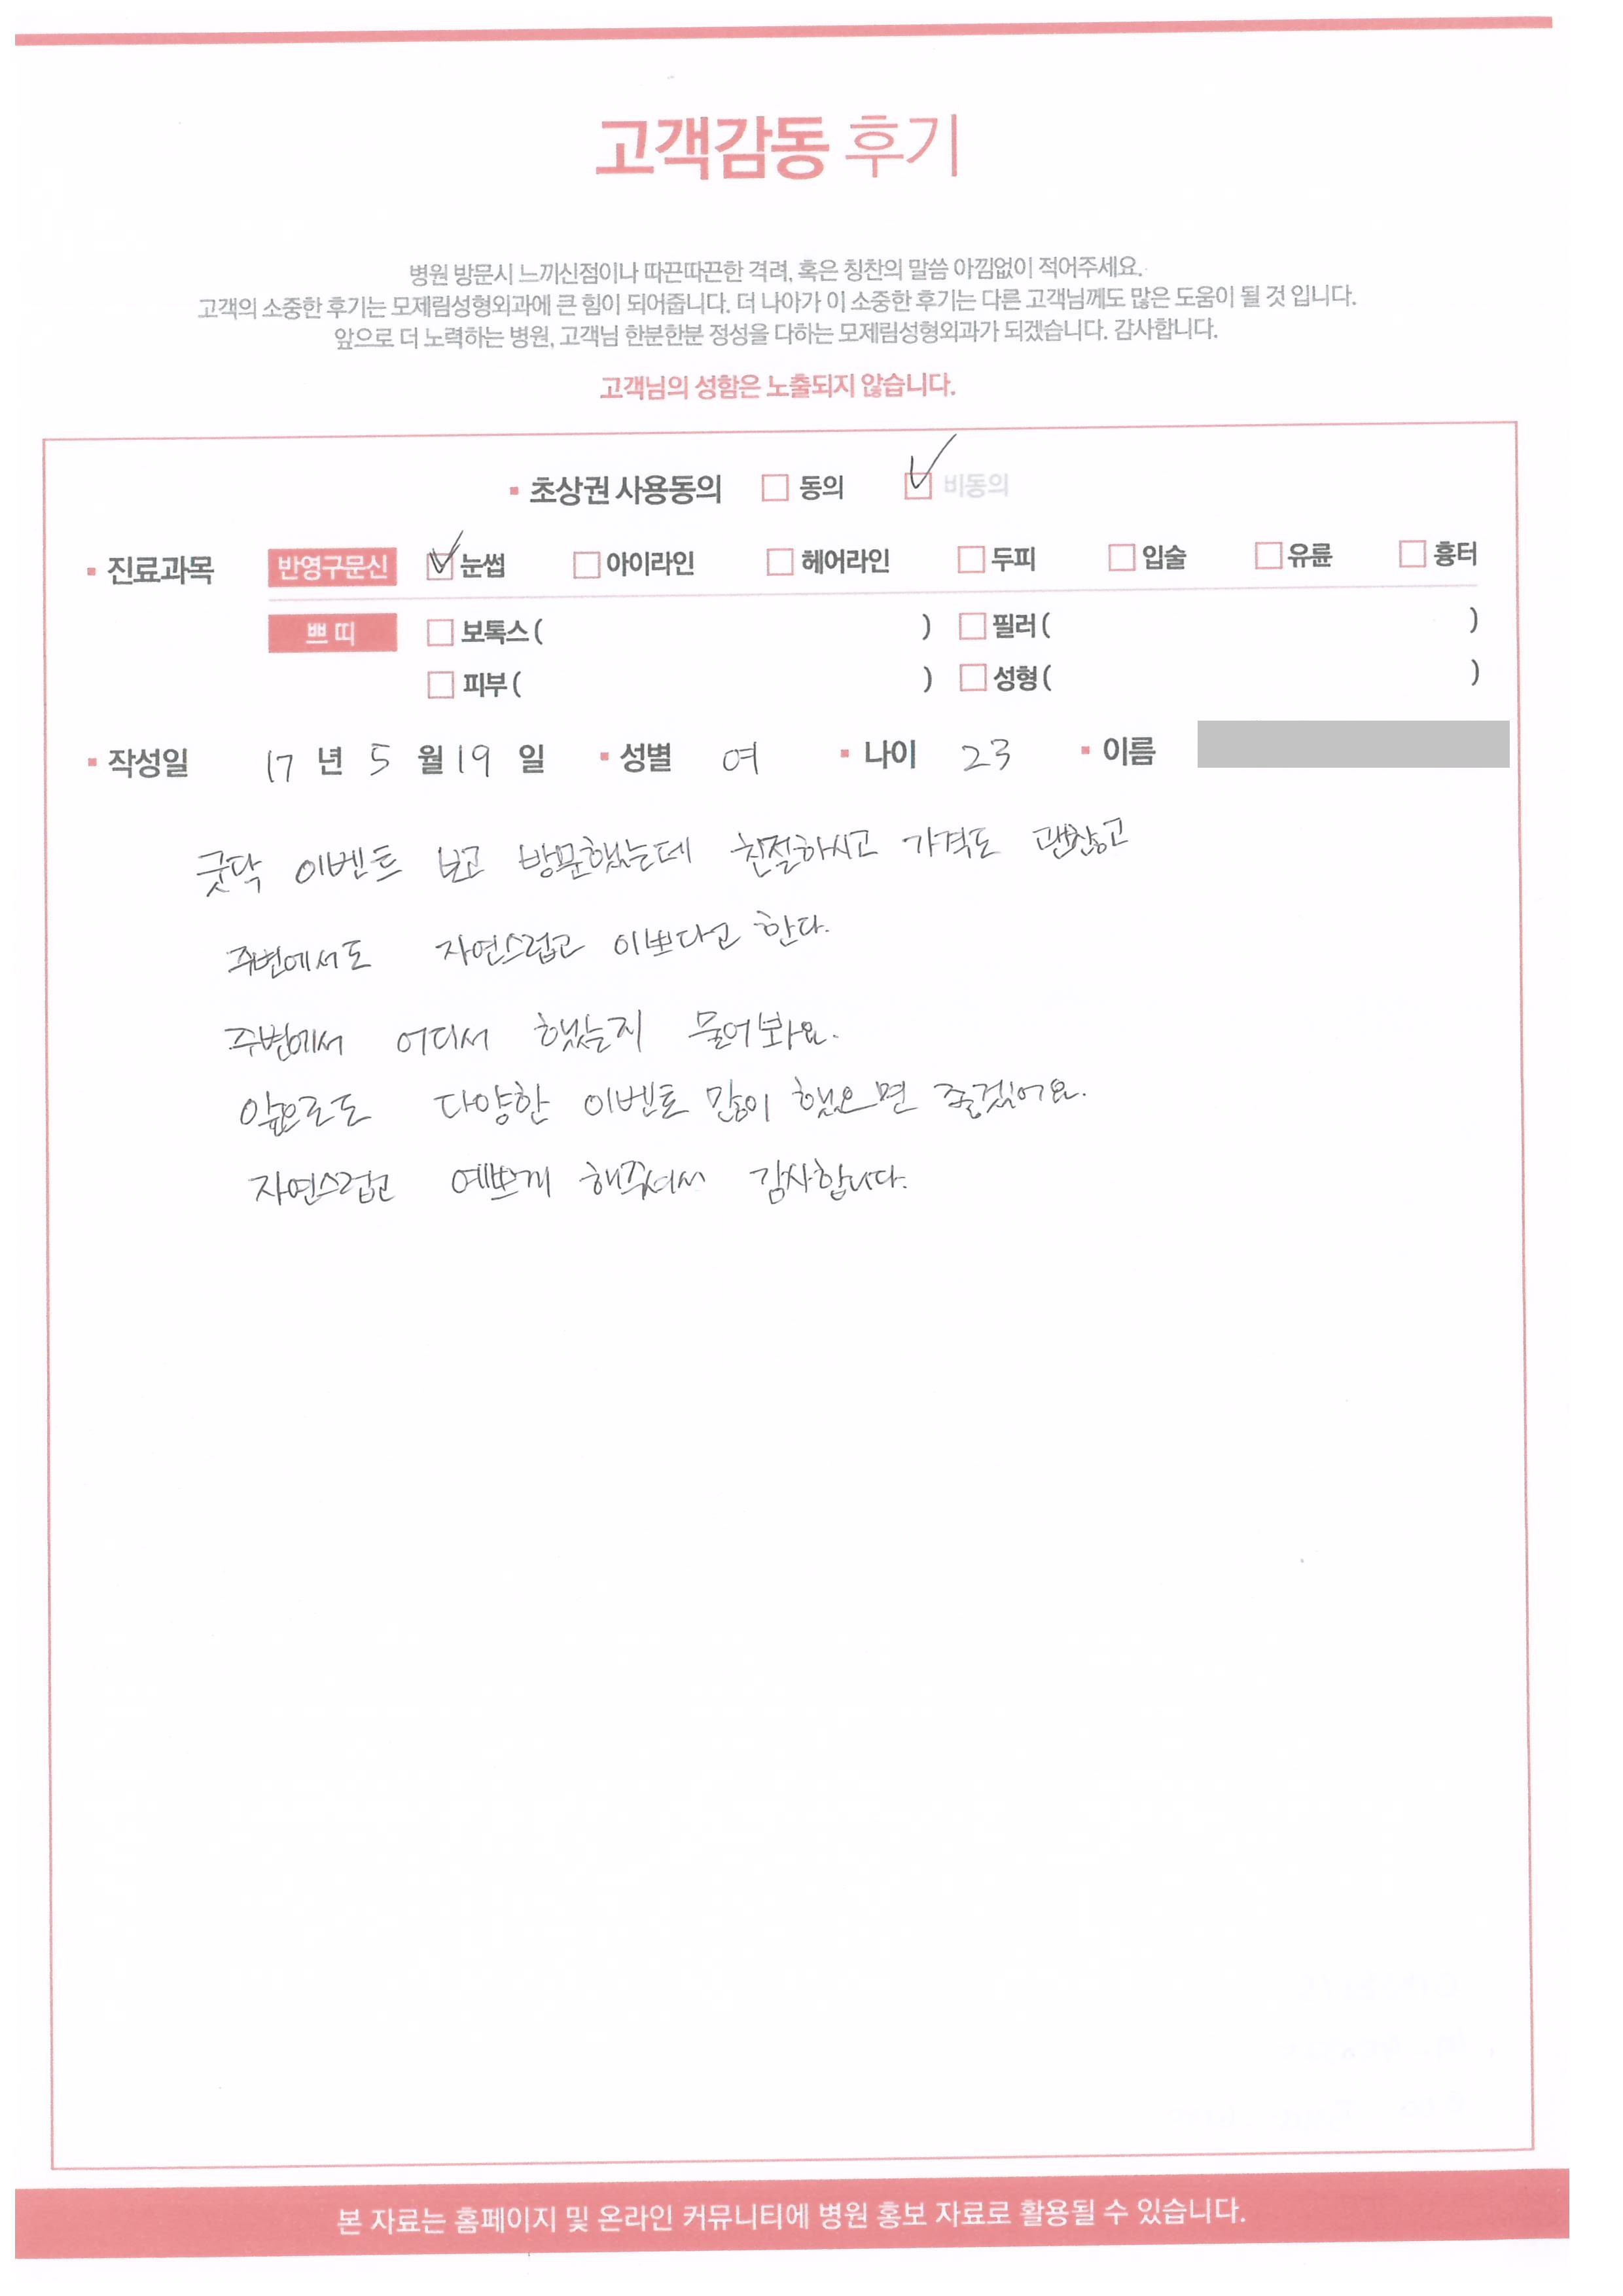 고객감동 후기
병원 방문시 느끼신점이나 따끈따끈한 격려, 혹은 칭찬의 말씀 아낌없이 적어주세요.
고객의 소중한 후기는 모제림성형외과에 큰 힘이 되어줍니다. 더 나아가 이 소중한 후기는 다른 고객님께도 많은 도움이 될 것 입니다.
앞으로 더 노력하는 병원, 고객님 한분한분 정성을 다하는 모제림성형외과가 되겠습니다. 감사합니다.
고객님의 성함은 노출되지 않습니다.
초상권 사용동의 동의 비동의
진료과목 반영구문신 눈썹 아이라인 헤어라인 두피 입술 유륜 흉터
쁘띠 보톡스 ( ) 필러 ( )
피부 ( ) 성형 ( )
작성일 17 년 5 월 19 일 성별 여 나이 23 이름
굿닥 이벤트 보고 방문했는데 친절하시고 가격도 괜찮고
주변에서도 자연스럽고 이쁘다고 한다.
주변에서 어디서 했는지 물어봐요.
앞으로도 다양한 이벤트 많이 했으면 좋겠어요.
자연스럽고 예쁘게 해주셔서 감사합니다.
본 자료는 홈페이지 및 온라인 커뮤니티에 병원 홍보 자료로 활용될 수 있습니다.